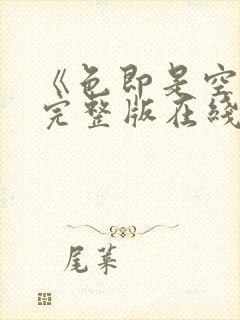 《色即是空
完整版在线
尾巢